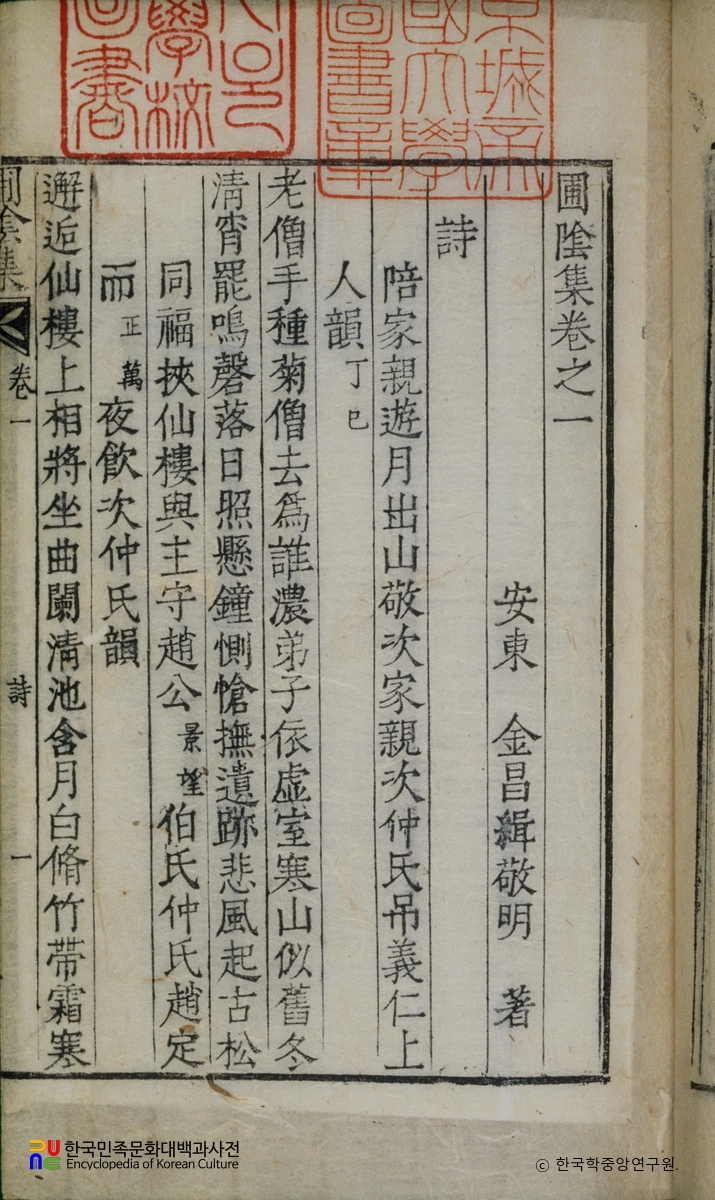 圃陰集卷之一
安東 金昌緝敬明 著
詩
陪家親遊月出山敬次家親次仲氏吊義仁上
人韻 丁巳
老僧手種菊僧去爲誰濃弟子依虛室寒山似舊冬
清宵罷鳴磬落日照懸鐘惻愴撫遺跡悲風起古松
同福挾仙樓與主守趙公 景望 伯氏仲氏趙定
而 正萬 夜飮次仲氏韻
邂逅仙樓上相將坐曲闌淸池含月白脩竹帶霜寒
圃陰集 卷一 詩 一
京城帝國大學圖書章
圖書
學校
한국민족문화대백과사전
Encyclopedia of Korean Culture
© 한국학중앙연구원.